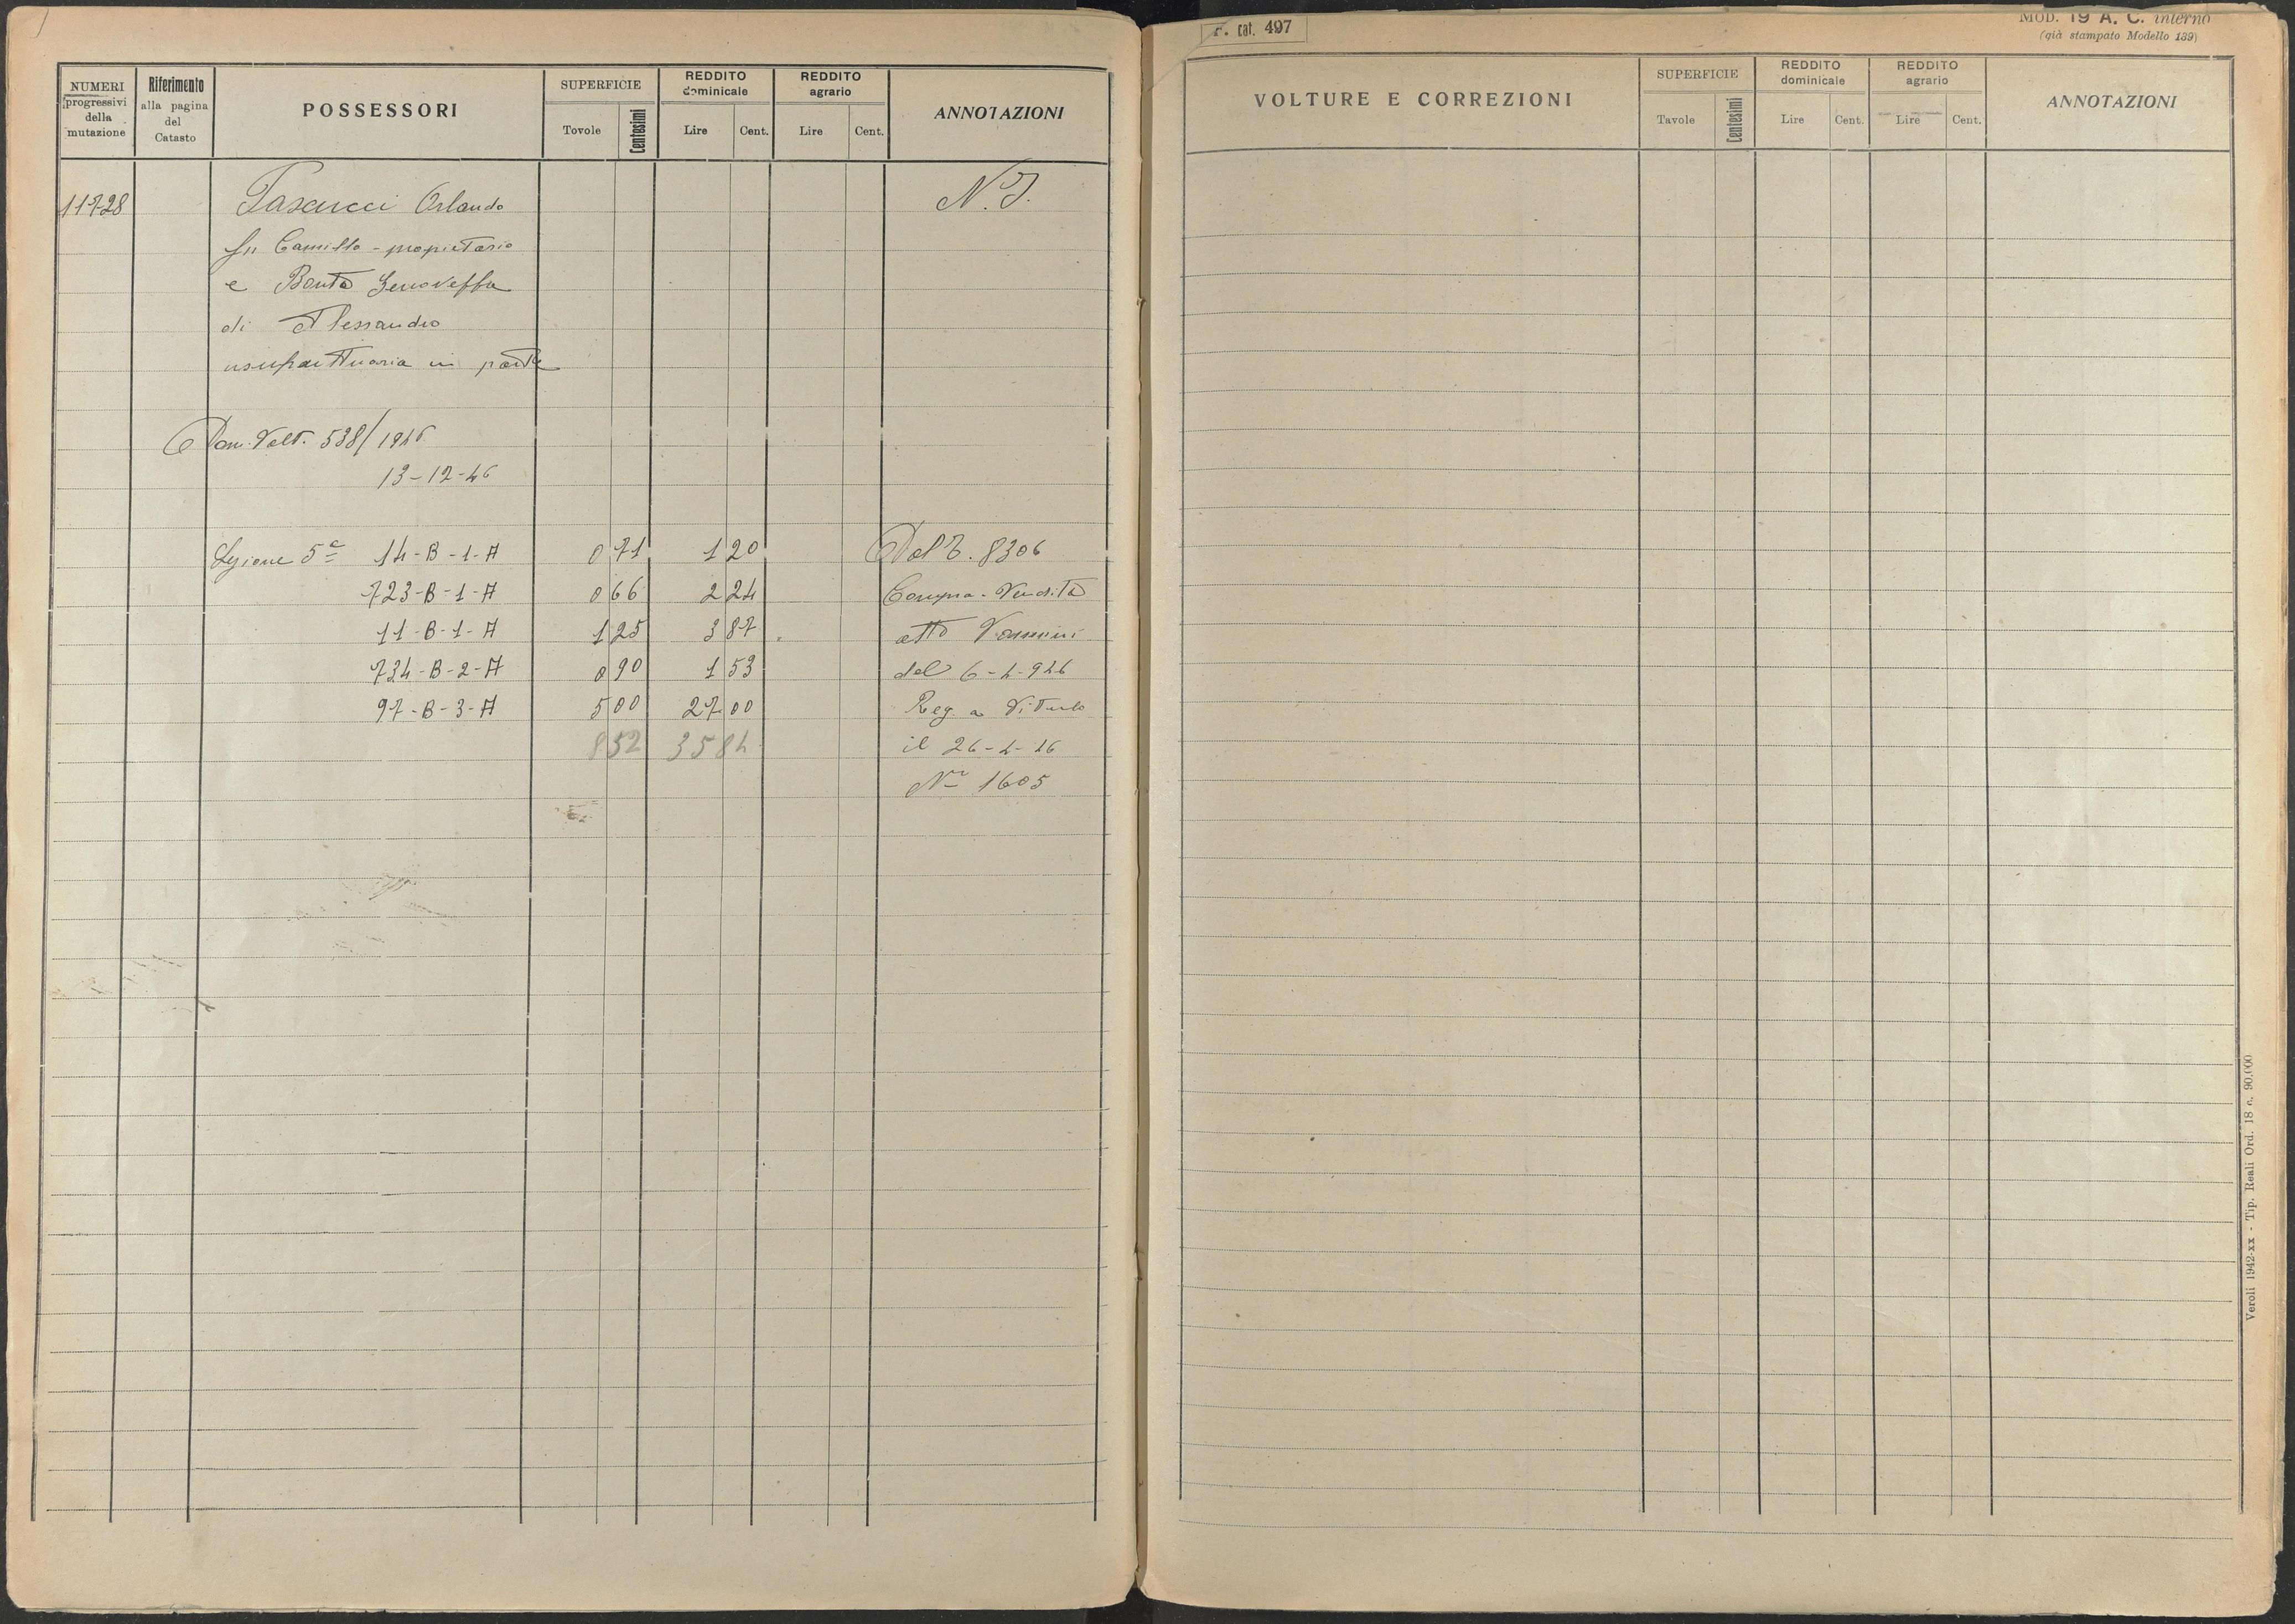 NUMERI progressivi della mutazione
Riferimento alla pagina del Catasto
POSSESSORI
SUPERFICIE
Tovole Centesimi
REDDITO dominicale
Lire Cent.
REDDITO agrario
Lire Cent.
ANNOTAZIONI
11728 Pascucci Orlando N.I.
fu Camillo - propietario
e Bonta Genoveffa
di Alessandro
usufruttuaria in parte
Dom. Volt. 538/1946
13-12-46
Sezione 5ª 14-B-1-A 0 71 1 20 Dal T. 8306
723-B-1-A 0 66 2 24 Compra-Vendita
11-B-1-A 1 25 3 87 atto Vannini
734-B-2-A 0 90 1 53 del 6-4-946
97-B-3-A 5 00 27 00 Reg. a Viterbo
8 52 35 84 il 26-4-46
N° 1605
P. cat. 497
MOD. 19 A. C. interno
(già stampato Modello 139)
VOLTURE E CORREZIONI
SUPERFICIE
Tavole Centesimi
REDDITO dominicale
Lire Cent.
REDDITO agrario
Lire Cent.
ANNOTAZIONI
Veroli 1942-xx - Tip. Reali Ord. 18 c. 90.000